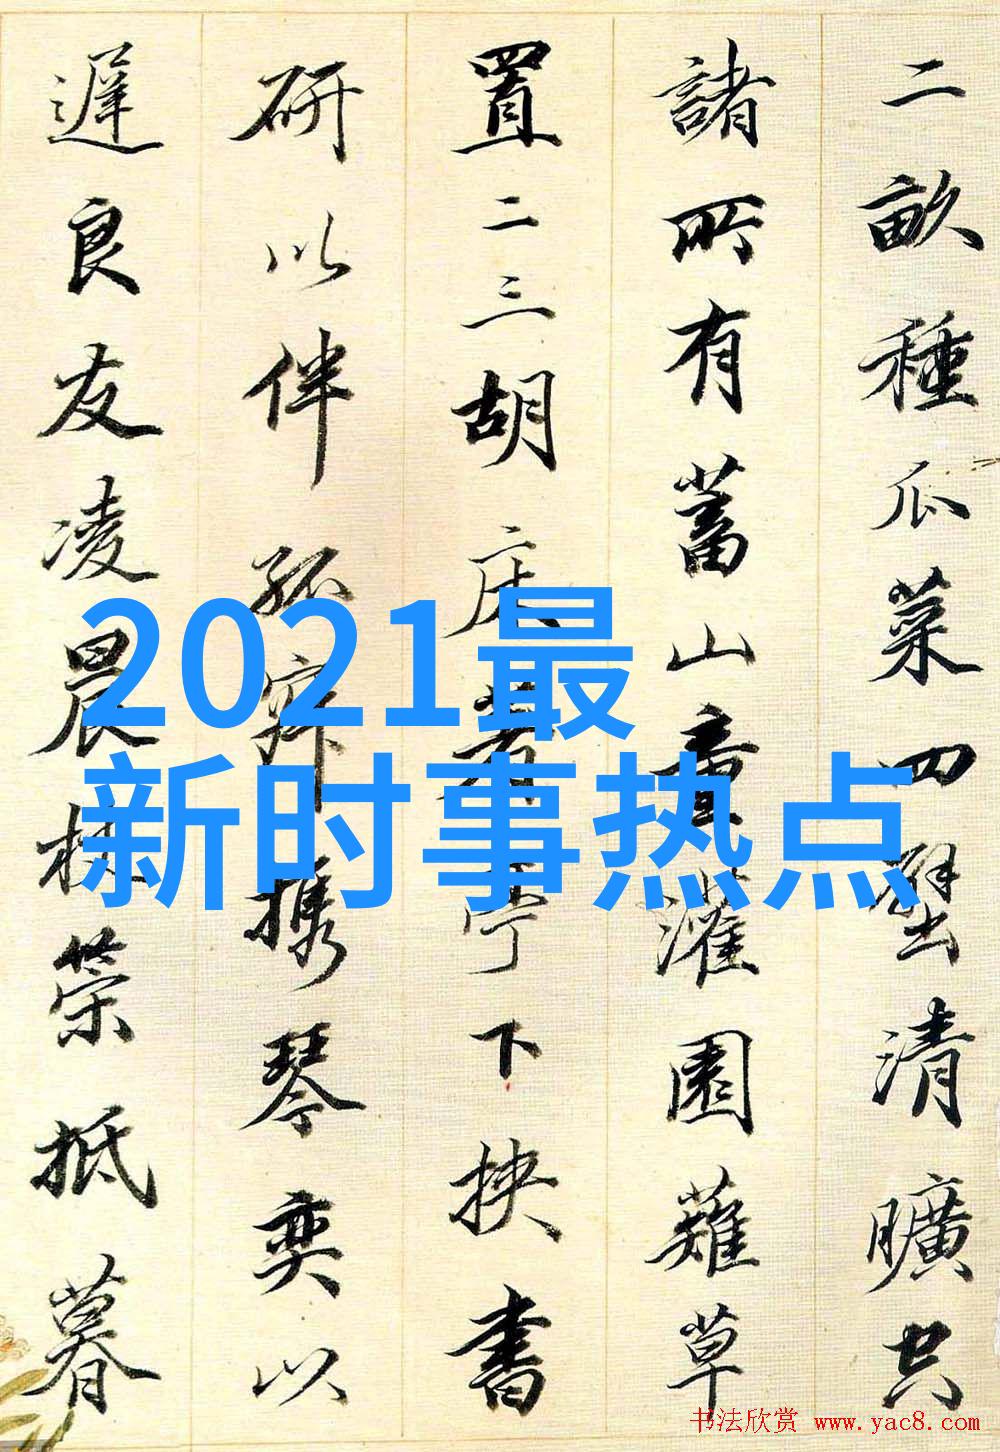 二畝種瓜菜四壁清曠空
諸所有蓄山童灌園薙草
置二三胡床著亭下挾書
研以伴孤寂攜琴奕以
遲良友凌晨杖策抵暮
2021最
新时事热点
书法欣赏 www.yac8.com